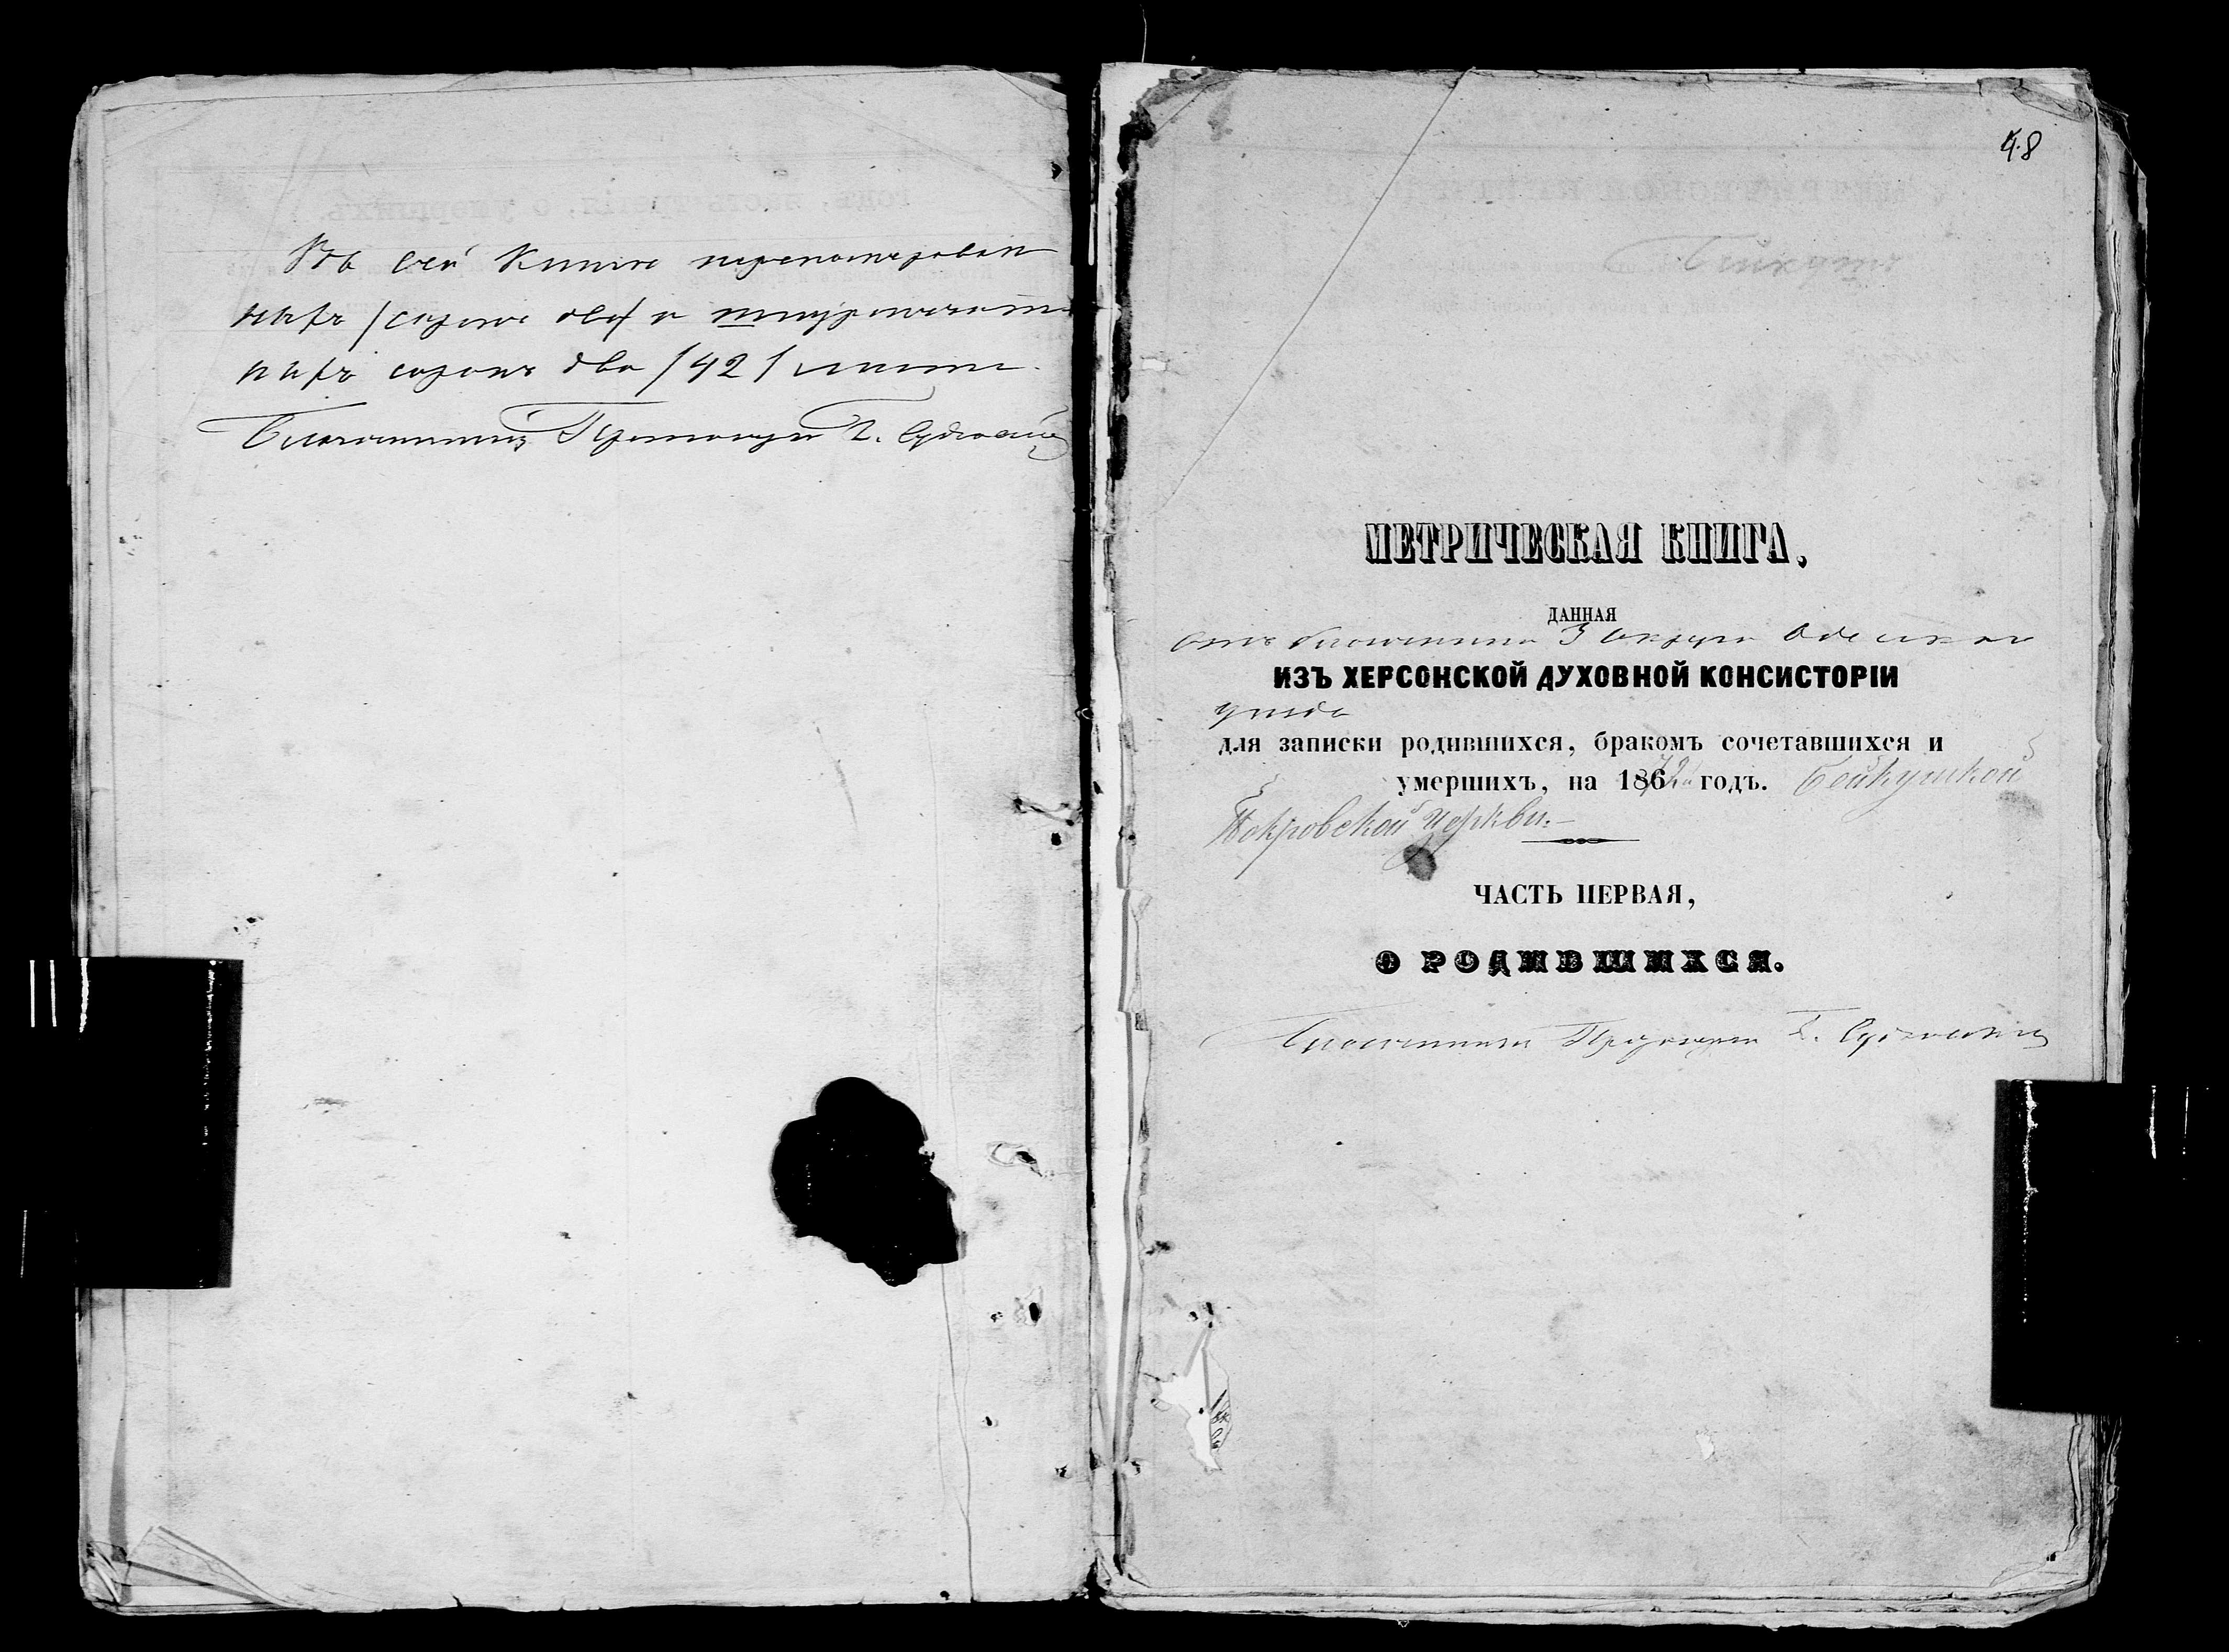 Въ сей Книгѣ перенумерован
сорокъ два и
сорокъ два /42/ листа.
Благочинный Протоіерей
48
МЕТРИЧЕСКАЯ КНИГА,
ДАННАЯ
отъ благочиннаго 3 округа Одесскаго
ИЗЪ ХЕРСОНСКОЙ ДУХОВНОЙ КОНСИСТОРІИ
уѣзда
для записки родившихся, бракомъ сочетавшихся и
умершихъ, на 1872 годъ. Бейкушкой
Покровской церкви.
ЧАСТЬ ПЕРВАЯ,
О РОДИВШИХСЯ.
Благочинный Протоіерей